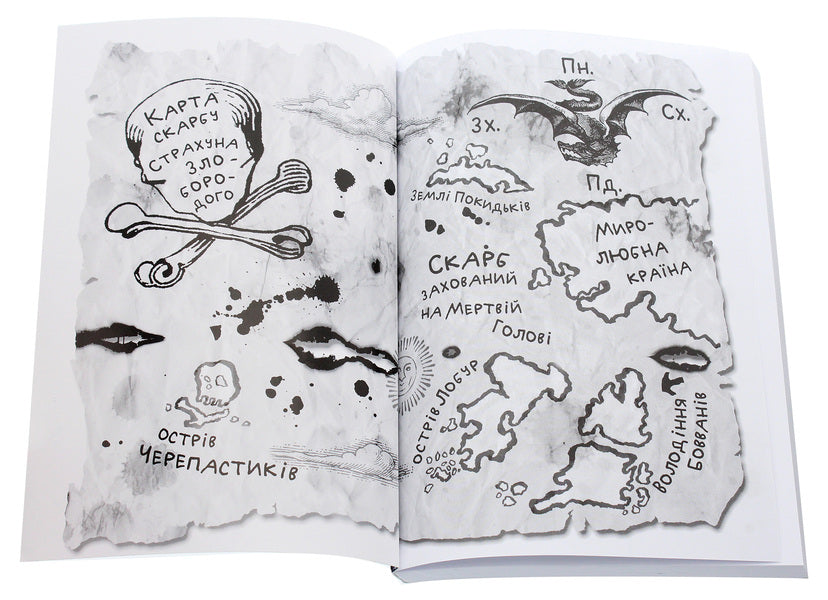 КАРТА
СКАРБУ
СТРАХУНА
ЗЛО-
БОРО-
ДОГО
ОСТРІВ
ЧЕРЕПАСТИКІВ
Пн.
Зх.
Сх.
Пд.
ЗЕМЛІ ПОКИДЬКІВ
МИРО-
ЛЮБНА
КРАЇНА
СКАРБ
ЗАХОВАНИЙ
НА МЕРТВІЙ
ГОЛОВІ
ОСТРІВ ЛОБУР
ВОЛОДІННЯ
БОВВАНІВ